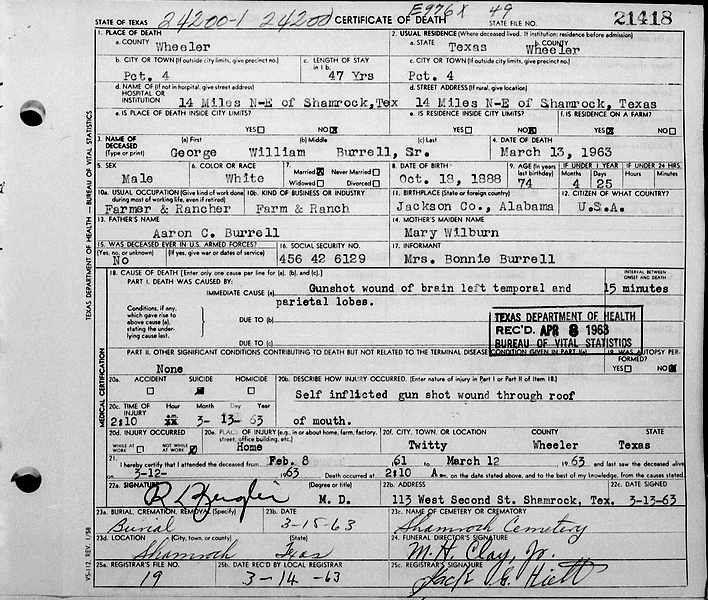 24200-1 24200 E976X 49
STATE OF TEXAS CERTIFICATE OF DEATH STATE FILE NO. 21418
1. PLACE OF DEATH 2. USUAL RESIDENCE (Where deceased lived. If institution: residence before admission)
a. COUNTY Wheeler a. STATE Texas b. COUNTY Wheeler
b. CITY OR TOWN (If outside city limits, give precinct no.) c. LENGTH OF STAY in 1 b. c. CITY OR TOWN (If outside city limits, give precinct no.)
Pct. 4 47 Yrs Pct. 4
d. NAME OF (If not in hospital, give street address) HOSPITAL OR INSTITUTION d. STREET ADDRESS (If rural, give location)
14 Miles N-E of Shamrock,Tex 14 Miles N-E of Shamrock, Texas
e. IS PLACE OF DEATH INSIDE CITY LIMITS? e. IS RESIDENCE INSIDE CITY LIMITS? f. IS RESIDENCE ON A FARM?
YES NO YES NO YES NO
3. NAME OF DECEASED (Type or print) (a) First (b) Middle (c) Last 4. DATE OF DEATH
George William Burrell, Sr. March 13, 1963
5. SEX 6. COLOR OR RACE 7. Married Never Married 8. DATE OF BIRTH 9. AGE (In years last birthday) IF UNDER 1 YEAR IF UNDER 24 HRS.
Widowed Divorced Months Days Hours Minutes
Male White Oct. 18, 1888 74 4 25
10a. USUAL OCCUPATION (Give kind of work done during most of working life, even if retired) 10b. KIND OF BUSINESS OR INDUSTRY 11. BIRTHPLACE (State or foreign country) 12. CITIZEN OF WHAT COUNTRY?
Farmer & Rancher Farm & Ranch Jackson Co., Alabama U.S.A.
13. FATHER'S NAME 14. MOTHER'S MAIDEN NAME
Aaron C. Burrell Mary Wilburn
15. WAS DECEASED EVER IN U.S. ARMED FORCES? 16. SOCIAL SECURITY NO. 17. INFORMANT
(Yes, no, or unknown) (If yes, give war or dates of service)
No 456 42 6129 Mrs. Bonnie Burrell
18. CAUSE OF DEATH [Enter only one cause per line for (a), (b), and (c).] INTERVAL BETWEEN ONSET AND DEATH
PART I. DEATH WAS CAUSED BY:
IMMEDIATE CAUSE (a) Gunshot wound of brain left temporal and 15 minutes
parietal lobes.
Conditions, if any, which gave rise to above cause (a), stating the underlying cause last.
DUE TO (b)
DUE TO (c)
TEXAS DEPARTMENT OF HEALTH
REC'D APR 8 1963
BUREAU OF VITAL STATISTICS
PART II. OTHER SIGNIFICANT CONDITIONS CONTRIBUTING TO DEATH BUT NOT RELATED TO THE TERMINAL DISEASE CONDITION GIVEN IN PART I(a) 19. WAS AUTOPSY PERFORMED?
None YES NO
20a. ACCIDENT SUICIDE HOMICIDE 20b. DESCRIBE HOW INJURY OCCURRED. (Enter nature of injury in Part I or Part II of Item 18.)
Self inflicted gun shot wound through roof
20c. TIME OF INJURY Hour Month Day Year
2:10 a.m. 3- 13- 63 of mouth.
20d. INJURY OCCURRED 20e. PLACE OF INJURY (e.g., in or about home, farm, factory, street, office building, etc.) 20f. CITY, TOWN, OR LOCATION COUNTY STATE
WHILE AT WORK NOT WHILE AT WORK Home Twitty Wheeler Texas
21. I hereby certify that I attended the deceased from Feb. 8 61 to March 12 1963 and last saw the deceased alive
3-12- 63 Death occurred at 2:10 A m. on the date stated above, and to the best of my knowledge, from the causes stated.
22a. SIGNATURE (Degree or title) 22b. ADDRESS 22c. DATE SIGNED
M. D. 113 West Second St. Shamrock, Tex. 3-13-63
23a. BURIAL, CREMATION, REMOVAL (Specify) 23b. DATE 23c. NAME OF CEMETERY OR CREMATORY
Burial 3-15-63 Shamrock Cemetery
23d. LOCATION (City, town, or county) (State) 24. FUNERAL DIRECTOR'S SIGNATURE
Shamrock Texas M. H. Clay, Jr.
25a. REGISTRAR'S FILE NO. 25b. DATE REC'D BY LOCAL REGISTRAR 25c. REGISTRAR'S SIGNATURE
19 3-14-63 Jack G. Hiett
TEXAS DEPARTMENT OF HEALTH — BUREAU OF VITAL STATISTICS
MEDICAL CERTIFICATION
VS-112, REV. 1/58